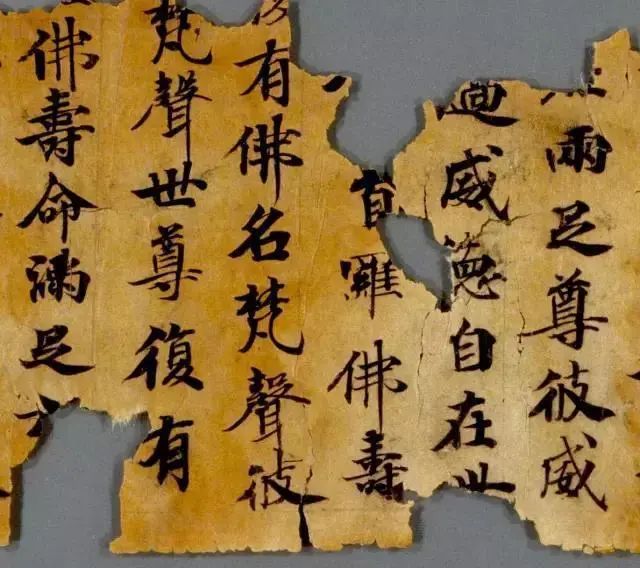 兩足尊彼威
過威德自在世
首羅佛壽
有佛名梵聲彼
梵聲世尊復有
佛壽命滿足